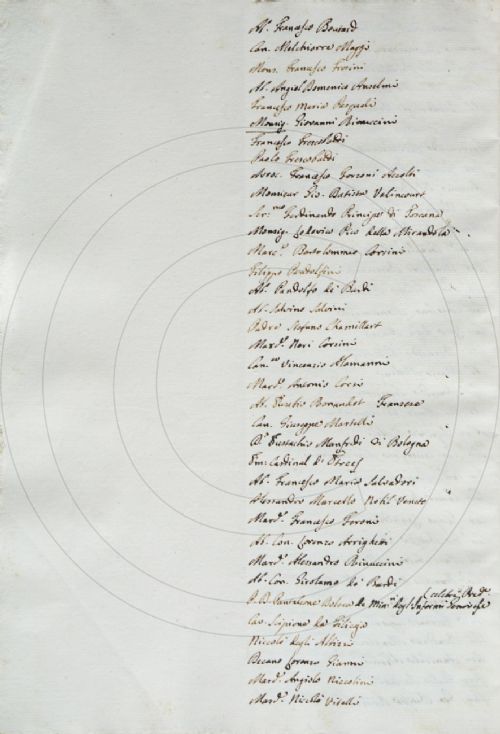 Ab. Francesco
Can. Melchiorre Maggi
Mons. Francesco Frosini
Ab. Angiol Domenico Anselmi
Francesco Maria
Monsig. Giovanni Rinuccini
Francesco Frescobaldi
Paolo Frescobaldi
Francesco Forzoni Accolti
Monsieur Gio. Batista Valincourt
Ser.mo Ferdinando Principe di Toscana
Monsig. Lodovico Pico della Mirandola
Marc. Bartolommeo Corsini
Filippo Pandolfini
Ab. Pandolfo de Bardi
Ab. Salvino Salvini
Padre Stefano Chamillart
March. Neri Corsini
Can.co Vincenzio Alamanni
March. Antonio Corsi
Ab. Eusebio Franzese
Can. Giuseppe Martelli
D. Eustachio Manfredi di Bologna
Em: Cardinal d'Etrees
Ab. Francesco Maria Salvadori
Alessandro Marcello Nobil Veneto
March. Francesco Feroni
Ab. Con. Lorenzo Arrighetti
March. Alessandro Rinuccini
Ab. Con. Girolamo de Bardi
(celebre Pred.e
P. D. Pantaleone de Min. degl'Infermi Genovese
Cav. Scipione da Filicaja
Niccolò degli Albizi
Decano Lorenzo Gianni
March. Angiolo Niccolini
March. Niccolò Vitelli